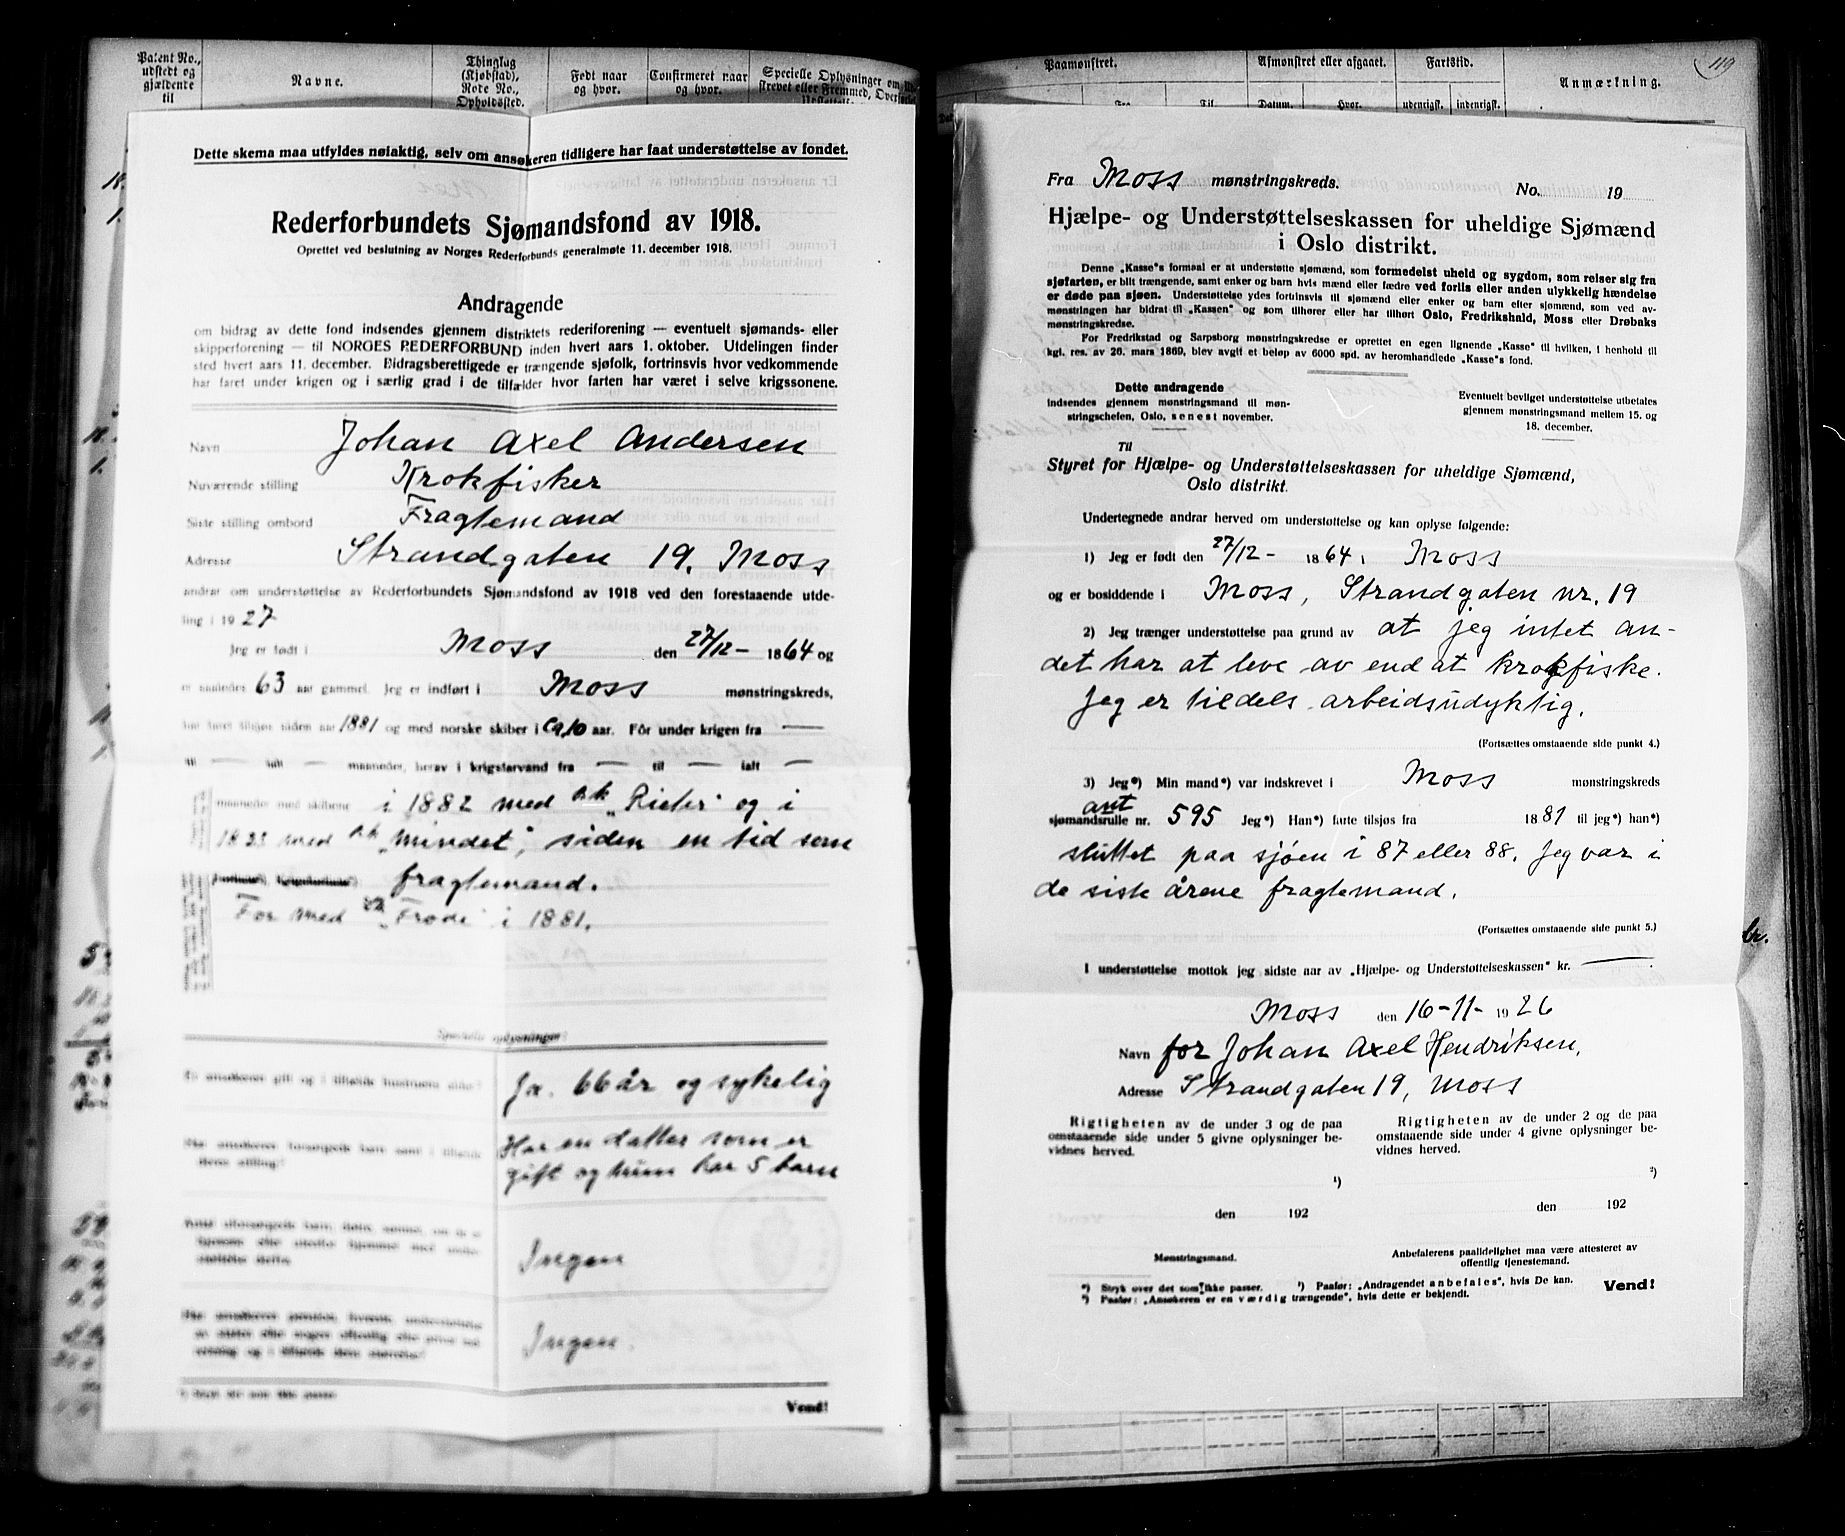 Patent No.,
udstedt og
gjældende
til
Navne.
Thinglag
(Kjøbstad),
Rode No.,
Opholdssted.
Født naar
og hvor.
Confirmeret naar
og hvor.
Specielle Oplysninger om
Dette skema maa utfyldes nøiaktig, selv om ansøkeren tidligere har faat understøttelse av fondet.
Rederforbundets Sjømandsfond av 1918.
Oprettet ved beslutning av Norges Rederforbunds generalmøte 11. december 1918.
Andragende
om bidrag av dette fond indsendes gjennem distriktets rederiforening — eventuelt sjømands- eller
skipperforening — til NORGES REDERFORBUND inden hvert aars 1. oktober. Utdelingen finder
sted hvert aars 11. december. Bidragsberettigede er trængende sjøfolk, fortrinsvis hvor vedkommende
har faret under krigen og i særlig grad i de tilfælder hvor farten har været i selve krigssonene.
Navn Johan Axel Andersen
Nuværende stilling Krokfisker
Siste stilling ombord Fragtemand
Adresse Strandgaten 19. Moss
andrar om understøttelse av Rederforbundets Sjømandsfond av 1918 ved den forestaaende utde-
ling i 1927
Jeg er født i Moss den 27/12 - 1864 og
er saaledes 63 aar gammel. Jeg er indført i Moss mønstringskreds,
har faret tilsjøs siden aar 1881 og med norske skiber i ca 10 aar. Fór under krigen fra —
til — ialt — maaneder, herav i krigsfarvand fra — til — ialt —
maaneder med skibene i 1882 med "Rieter" og i
med "Mindet", siden en tid som
fragtemand.
For med "Frode" i 1881.
Specielle oplysninger:
Er ansøkeren gift og i tilfælde hustruens alder? Ja. 66 år og sykelig
Har en datter som er
gift og hun har 5 barn
Ingen
Ingen.
Vend!
119
Paamønstret.
Afmønstret eller afgaaet.
Fartstid.
Anmærkning.
Fra
Til
Datum.
Hvor.
udenrigsk.
indenrigsk.
Fra Moss mønstringskreds. No. 19
Hjælpe- og Understøttelseskassen for uheldige Sjømænd
i Oslo distrikt.
Denne „Kasse"s formaal er at understøtte sjømænd, som formedelst uheld og sygdom, som reiser sig fra
sjøfarten, er blit trængende, samt enker og barn hvis mænd eller fædre ved forlis eller anden ulykkelig hændelse
er døde paa sjøen. Understøttelse ydes fortrinsvis til sjømænd eller enker og barn efter sjømænd, som ved av-
mønstringen har bidrat til „Kassen" og som tilhører eller har tilhørt Oslo, Fredrikshald, Moss eller Drøbaks
mønstringskredse.
For Fredrikstad og Sarpsborg mønstringskredse er oprettet en egen lignende „Kasse" til hvilken, i henhold til
kgl. res. av 20. mars 1869, blev avgit et beløp av 6000 spd. av heromhandlede „Kasse"s fond.
Dette andragende
indsendes gjennem mønstringsmand til møn-
stringschefen, Oslo, senest november.
Eventuelt bevilget understøttelse utbetales
gjennem mønstringsmand mellem 15. og
18. december.
Til
Styret for Hjælpe- og Understøttelseskassen for uheldige Sjømænd,
Oslo distrikt.
Undertegnede andrar herved om understøttelse og kan oplyse følgende:
1) Jeg er født den 27/12 - 1864 i Moss
og er bosiddende i Moss, Strandgaten nr. 19
2) Jeg trænger understøttelse paa grund av at jeg intet an-
det har at leve av end at krokfiske.
Jeg er tildels arbeidsudyktig.
(Fortsættes omstaaende side punkt 4.)
3) Jeg*) Min mand*) var indskrevet i Moss mønstringskreds
ant
sjømandsrulle nr. 595 Jeg*) Han*) farte tilsjøs fra 1881 til jeg*) han*)
sluttet paa sjøen i 87 eller 88. Jeg var i
de siste årene fragtemand.
(Fortsættes omstaaende side punkt 5.)
I understøttelse mottok jeg sidste aar av „Hjælpe- og Understøttelseskassen" kr. —
Moss den 16-11- 1926
Navn for Johan Axel Hendriksen,
Adresse Strandgaten 19, Moss
Rigtigheten av de under 3 og de paa
omstaaende side under 5 givne oplysninger be-
vidnes herved.
¹)
den 192
Mønstringsmand.
Rigtigheten av de under 2 og de paa
omstaaende side under 4 givne oplysninger be-
vidnes herved.
²)
den 192
Anbefalerens paalidelighet maa være attesteret av
offentlig tjenestemand.
*) Stryk over det som ikke passer. ¹) Paafør: „Andragendet anbefales", hvis De kan.
²) Paafør: „Ansøkeren er en værdig trængende", hvis dette er bekjendt.
Vend!